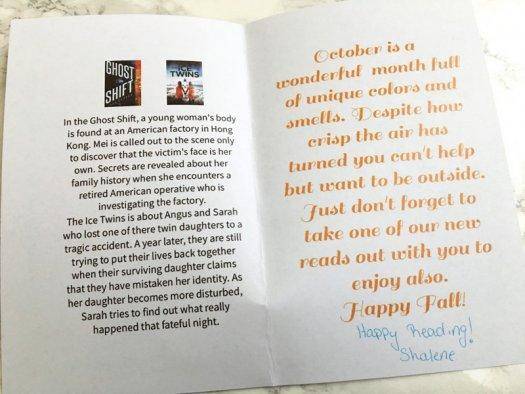 GHOST
SHIFT
ICE
TWINS
In the Ghost Shift, a young woman's body
is found at an American factory in Hong
Kong. Mei is called out to the scene only
to discover that the victim's face is her
own. Secrets are revealed about her
family history when she encounters a
retired American operative who is
investigating the factory.
The Ice Twins is about Angus and Sarah
who lost one of there twin daughters to a
tragic accident. A year later, they are still
trying to put their lives back together
when their surviving daughter claims
that they have mistaken her identity. As
her daughter becomes more disturbed,
Sarah tries to find out what really
happened that fateful night.
October is a
wonderful month full
of unique colors and
smells. Despite how
crisp the air has
turned you can't help
but want to be outside.
Just don't forget to
take one of our new
reads out with you to
enjoy also.
Happy Fall!
Happy Reading!
Shalene